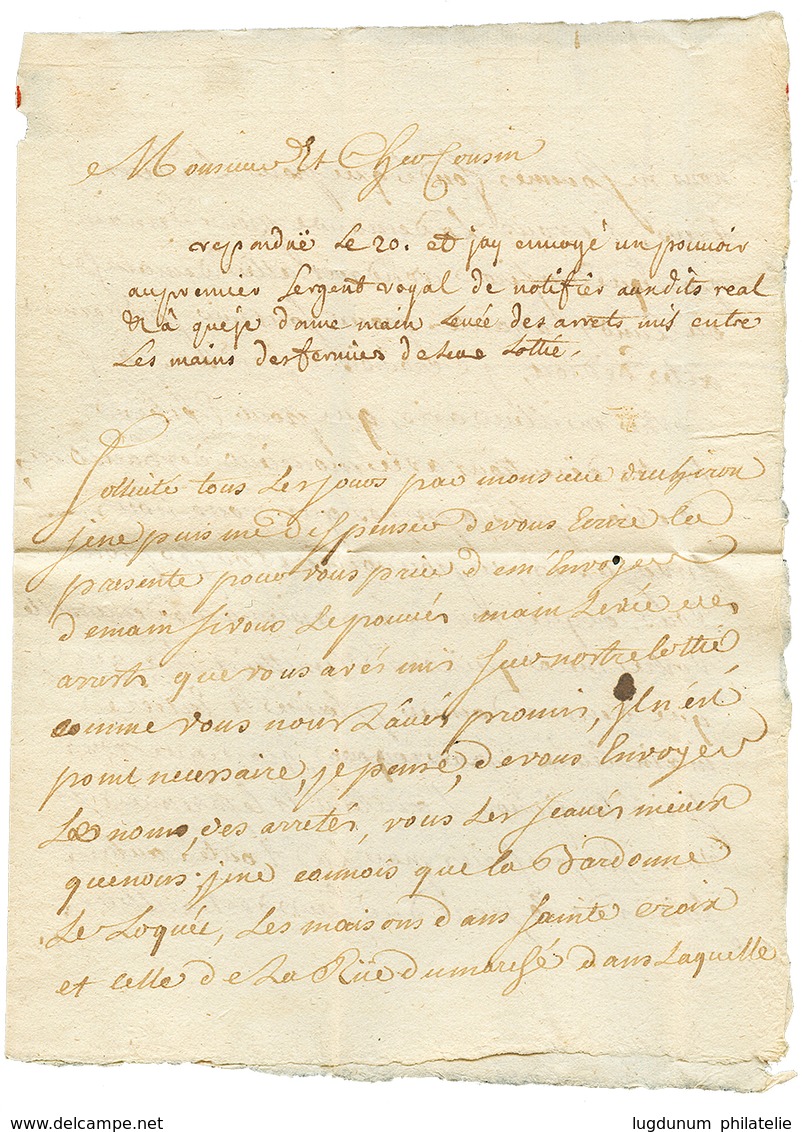 Monsieur Et Cher Cousin
repondüe le 20. et jay envoyé un pouvoir
au premier sergent royal de notifier auxdits real
& à que je donne main levée des arrets mis entre
les mains des fermiers de leur lottie.
Sollicité tous les jours par monsieur duchiron
je ne puis me dispenser de vous Ecrire la
presente pour vous prier de m'Envoyer
demain si vous le pouvés main Levée des
arrests que vous avés mis sur nostre lottie
comme vous nous L'avés promis, il n'ést
point necessaire, je pense, de vous Envoyer
Les noms, des arretés, vous les sçavés mieux
que nous; je ne connois que la Bardonne
Le Loquée, Les maisons dans sainte croix
et celle de La Rüe du marché dans Laquelle
www.delcampe.net
lugdunum philatelie